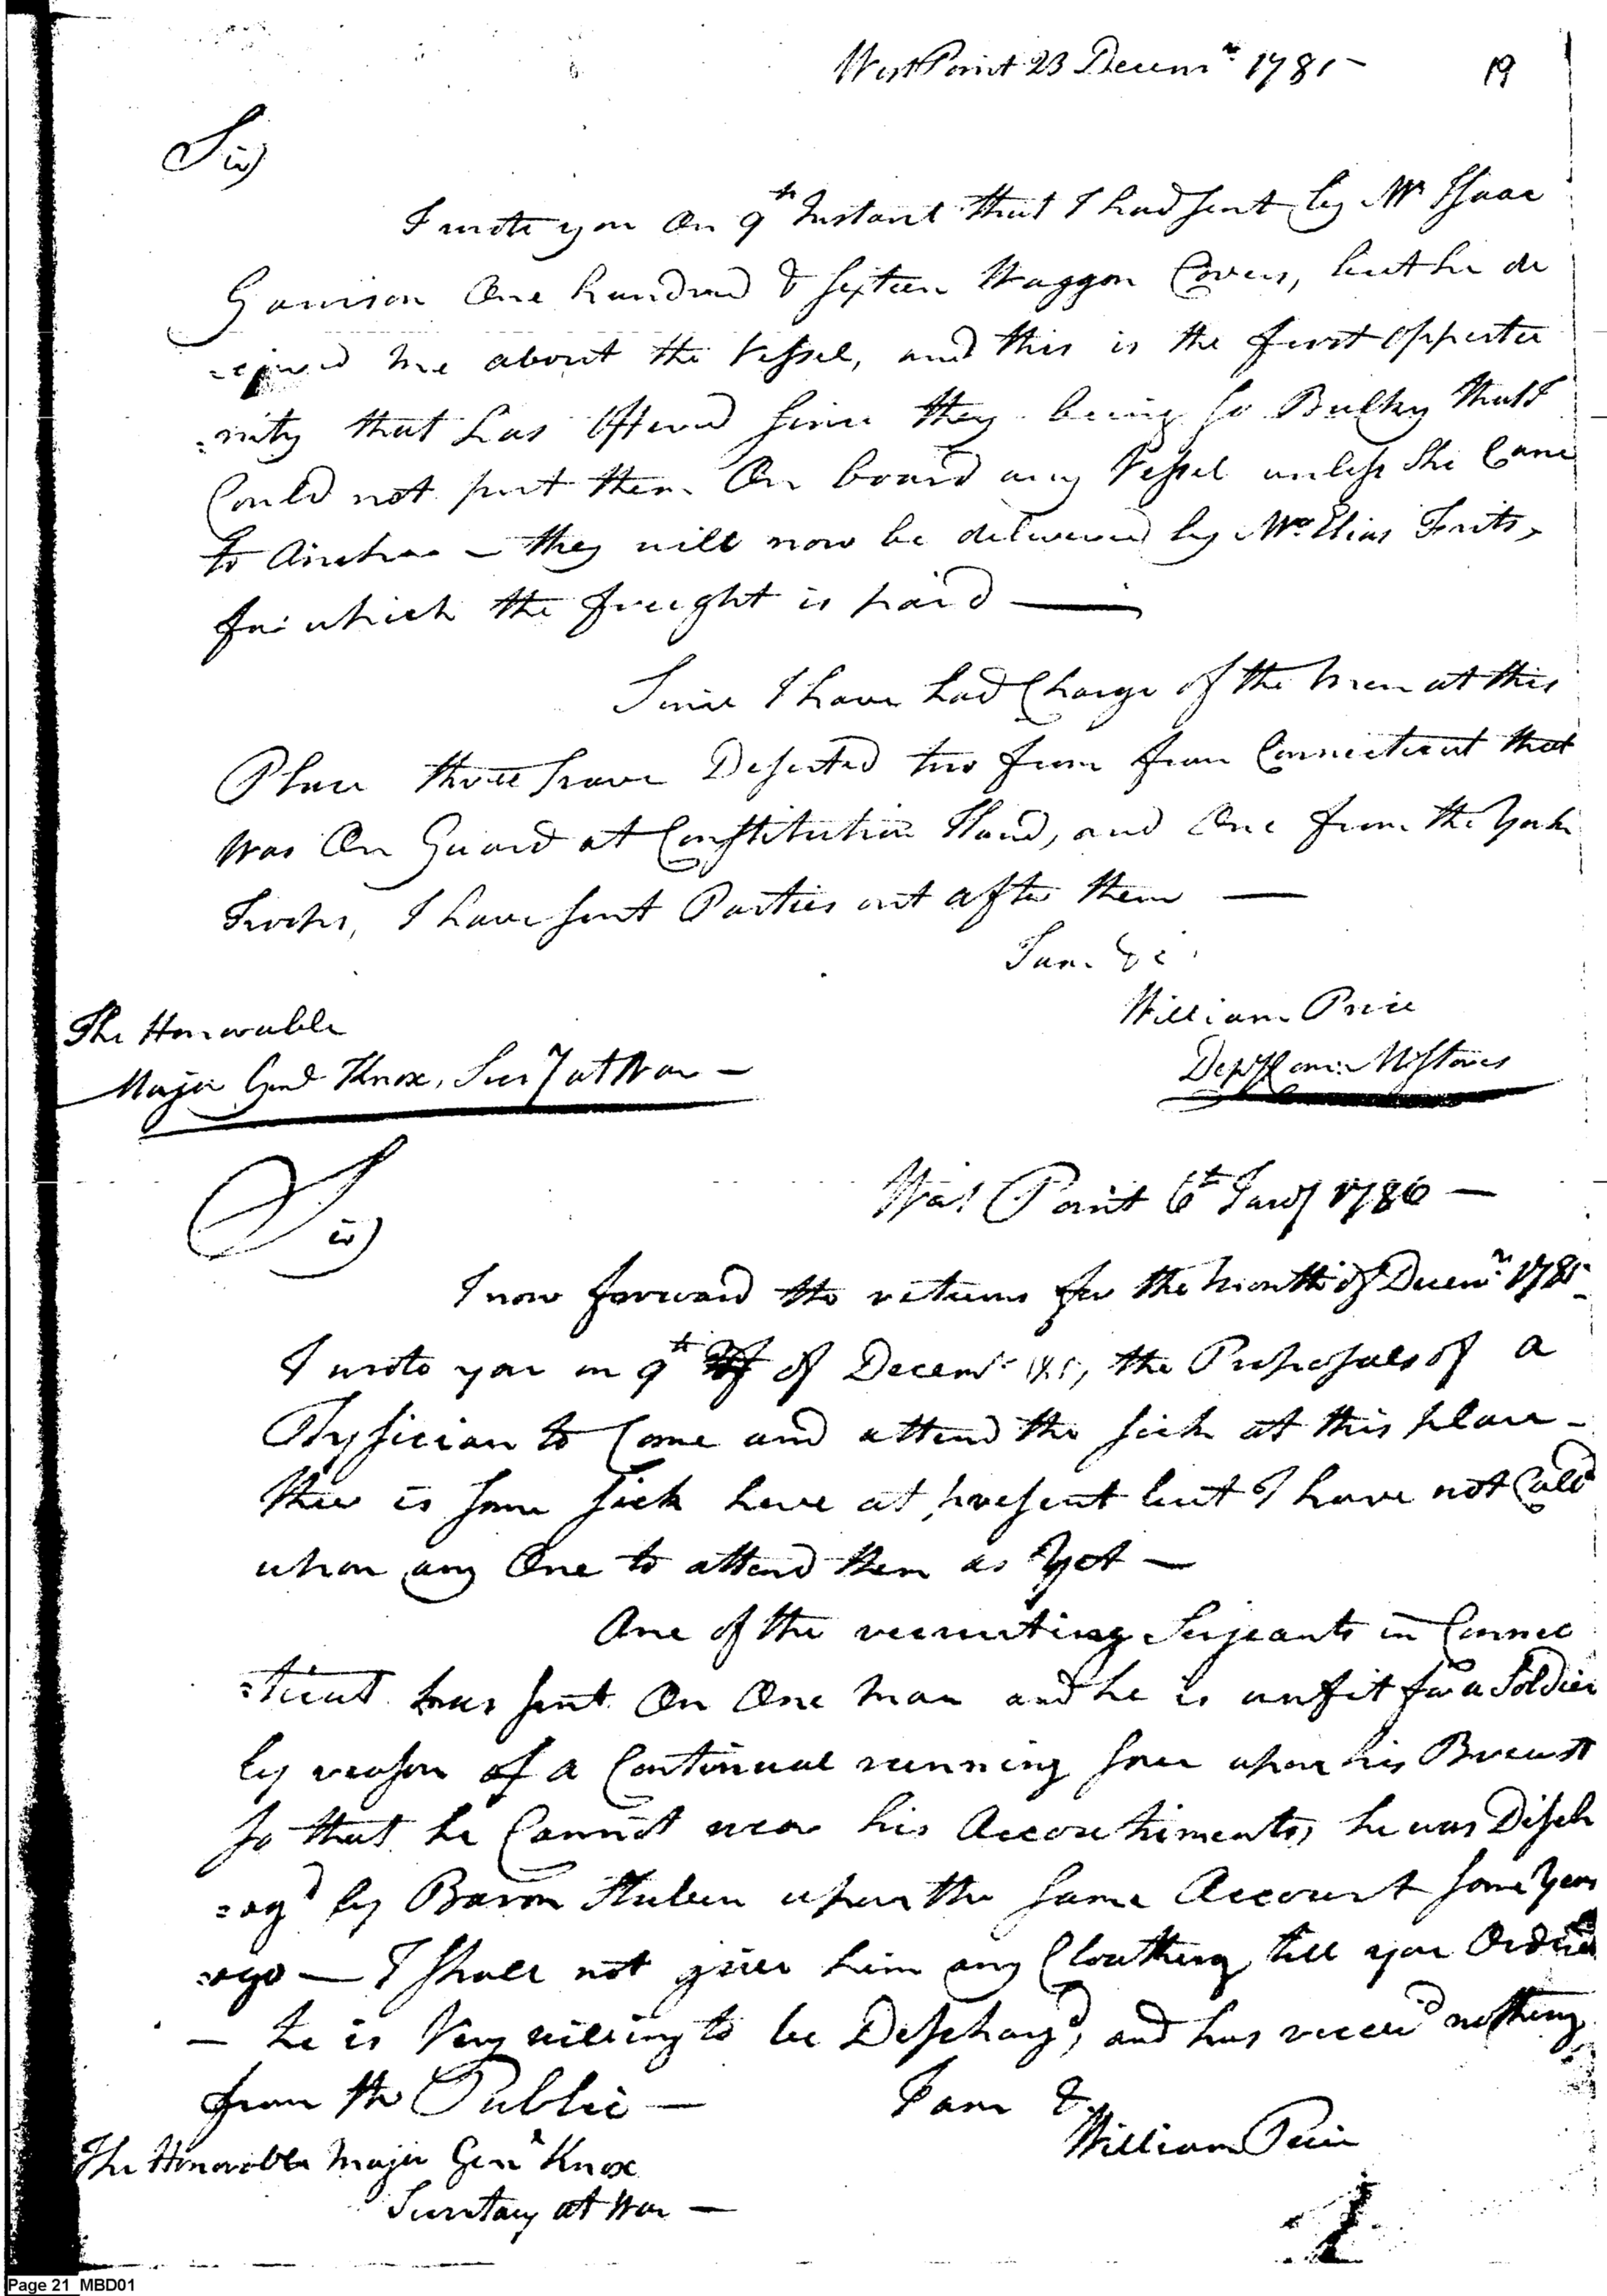 West Point 23 Decemr 1785 –
19
Sir
I wrote you On 9th Instant that I had sent by Mr Isaac
Garrison One hundred & sixteen Waggon Covers, but he de
=ceived me about the Vessel, and this is the first opportu
=nity that has Offered since they being so Bulky that I
Could not put them On board any Vessel unless She Came
to Anchor – they will now be delivered by Mr Elias Frits,
for which the freight is paid —
Since I have had Charge of the men at this
Place three have Deserted two from from Connecticut that
was On Guard at Constitution Iland, and One from the York
Troops, I have sent Parties out after them —
I am &c
William Price
Depy Com: M Stores
The Honorable
Major Genl Knox, Secy at War –
West Point 6th Jany 1786 –
Sir
I now forward the returns for the month of Decemr 1785
I wrote you on 9th of Decemr 1785, the Proposals of a
Physician to Come and attend the sick at this place –
there is some sick here at present but I have not Calld
upon any One to attend them as Yet –
One of the recruiting Serjeants in Connec
=ticut has sent On One man and he is unfit for a Soldier
by reason of a Continual running sore upon his Breast
so that he Cannot wear his Accoutriments, he was Disch
=argd by Baron Stuben upon the same Account some Years
=ago — I shall not give him any Cloathing till your Orders
– he is Very willing to be Dischargd, and has receivd nothing
from the Public –
I am &
William Price
The Honorable Major Genl Knox
Secretary at War –
Page 21 MBD01